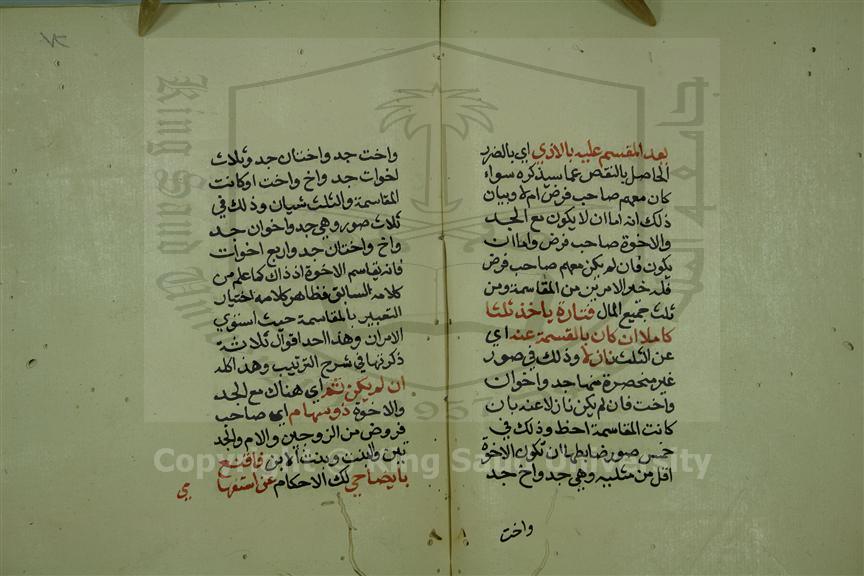 بعد المقسم عليه بالاذي اي بالضرر
الحاصل بالنقص عما سيذكره سواء
كان معهم صاحب فرض ام لا وبيان
ذلك انه اما ان لا يكون مع الجد
والاخوة صاحب فرض واما ان
يكون فان لم يكن معهم صاحب فرض
فله خير الامرين من المقاسمة ومن
ثلث جميع المال فتارة ياخذ ثلثا
كاملا ان كان بالقسمة عنه اي
عن الثلث نازلا وذلك في صور
غير منحصرة منها جد واخوان
واخت فان لم يكن نازلا عنه بان
كانت المقاسمة احظ وذلك في
خمس صور ضابطها ان تكون الاخوة
اقل من مثليه وهي جد واخ جد
واخت
واخت جد واختان جد وثلاث
اخوات جد واخ واخت او كانت
المقاسمة والثلث شيان وذلك في
ثلاث صور وهي جد واخوان جد
واخ واختان جد واربع اخوات
فانه يقاسم الاخوة اذ ذاك كما علم من
كلامه السابق فظاهر كلامه اختيار
التعبير بالمقاسمة حيث استوي
الامران وهذا احد اقوال ثلاثة
ذكرنها في شرح الترتيب وهذا كله
ان لم يكن ثم اي هناك مع الجد
والاخوة ذو سهام اي صاحب
فروض من الزوجين والام والجد
تين والبنت وبنت الابن فاقنع
بايضاحي لك الاحكام عن استفها
مي
Copyright © King Saud University
King Saud University
جامعة
1957